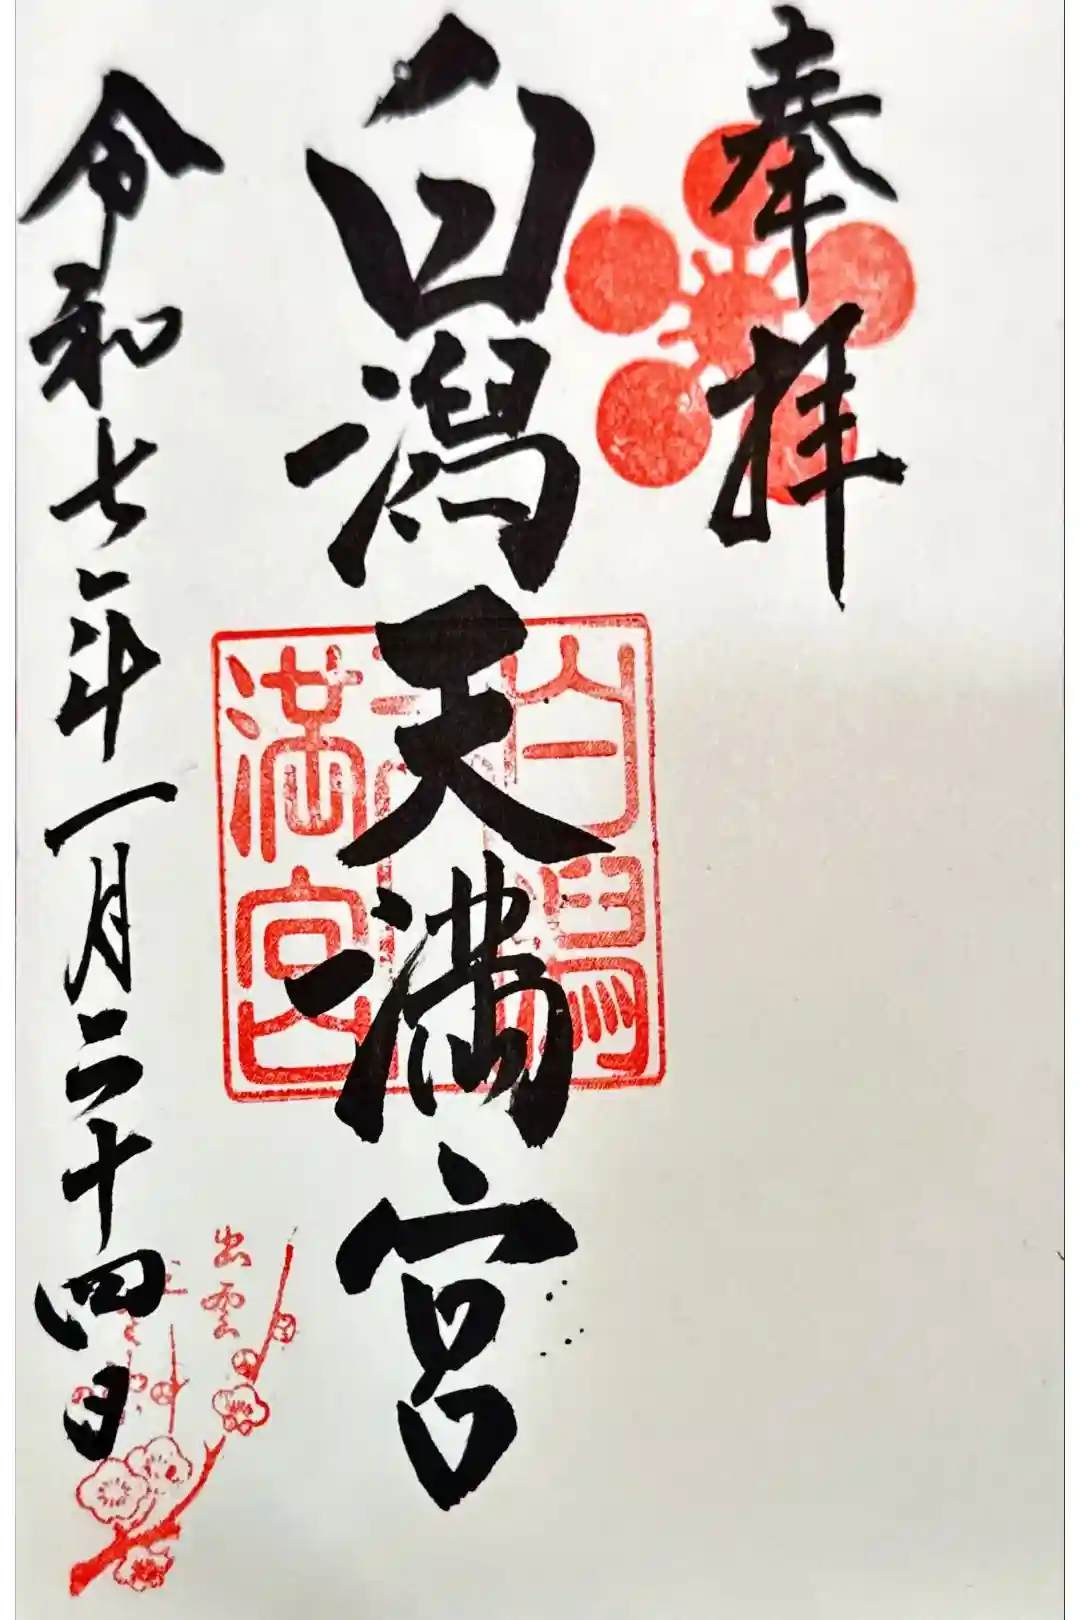 奉拝
白潟天満宮
白潟
天
満宮
令和七年一月二十四日
出雲